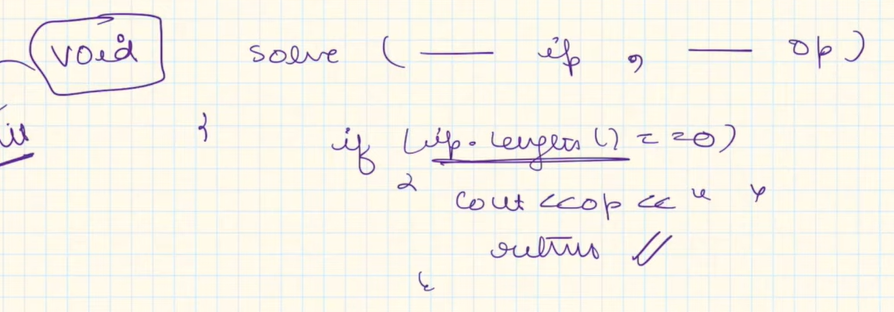 void solve ( — ip , — op )
{ if (ip.length() == 0)
{ cout << op << " "
return //
}